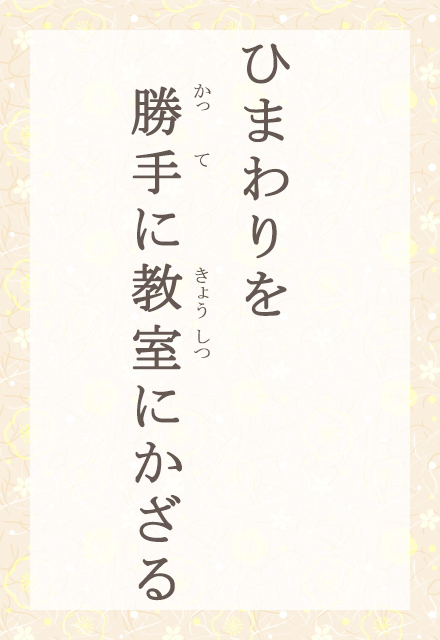 ひまわりを
勝手に教室にかざる
かって
きょうしつ